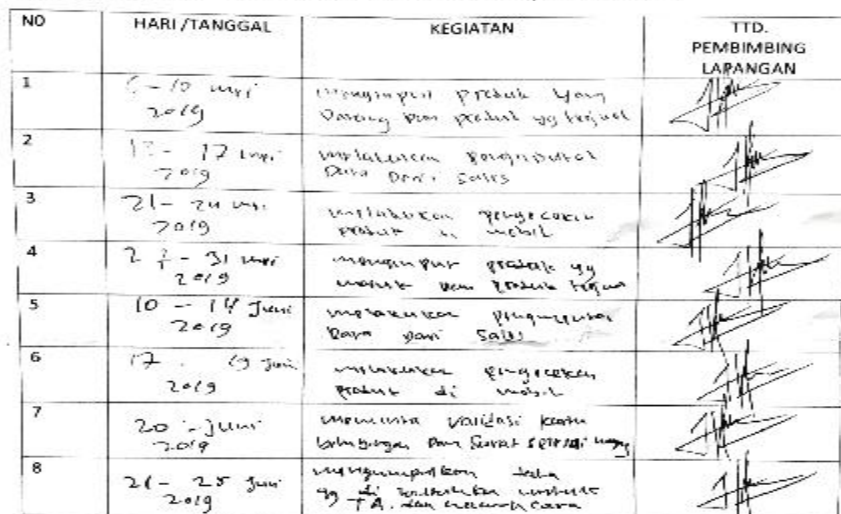 NO HARI/TANGGAL KEGIATAN TTD.
PEMBIMBING
LAPANGAN
1 6-10 mei menginput produk yang
2019 Datang Dan produk yg terjual
2 13 - 17 mei melakukan penginputan
2019 Data Dari Sales
3 21 - 24 mei melakukan pengecekan
2019 produk di mobil
4 27 - 31 mei menginput produk yg
2019 masuk Dan produk terjual
5 10 - 14 Juni melakukan penginputan
2019 Data Dari Sales
6 17 - 19 Juni melakukan pengecekan
2019 produk di mobil
7 20 - Juni meminta validasi kartu
2019 bimbingan Dan Surat selesai
8 21 - 25 Juni mengumpulkan data
2019 yg di untuk
TA. dan